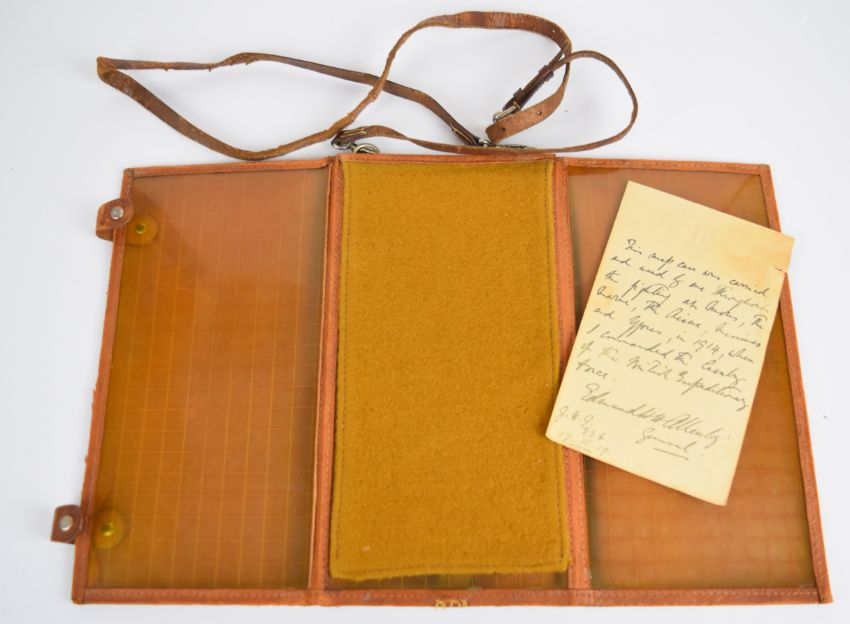 This map case was carried
and used by me throughout
the fighting at Mons, the
Marne, the Aisne, Messines
and Ypres, in 1914, when
I commanded the Cavalry
of the British Expeditionary
Force.
Edmund H H Allenby
General.
G.H.Q.
E.E.F.